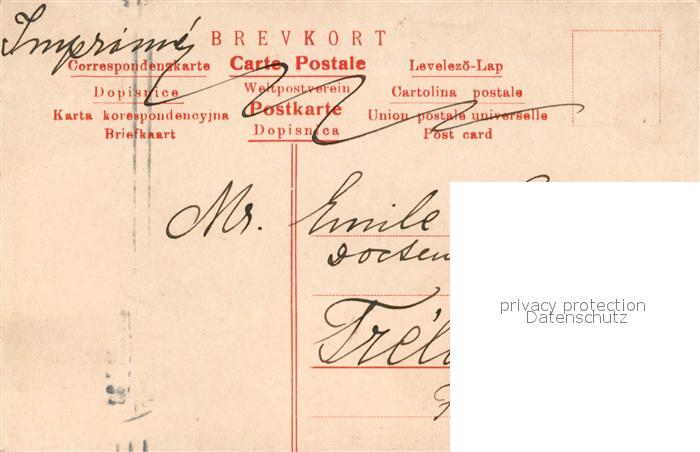 Imprimé
BREVKORT
Correspondenzkarte Carte Postale Levelező-Lap
Dopisnice Weltpostverein Cartolina postale
Karta korespondencyjna Postkarte Union postale universelle
Briefkaart Dopisnica Post card
Mr. Emile
privacy protection
Datenschutz